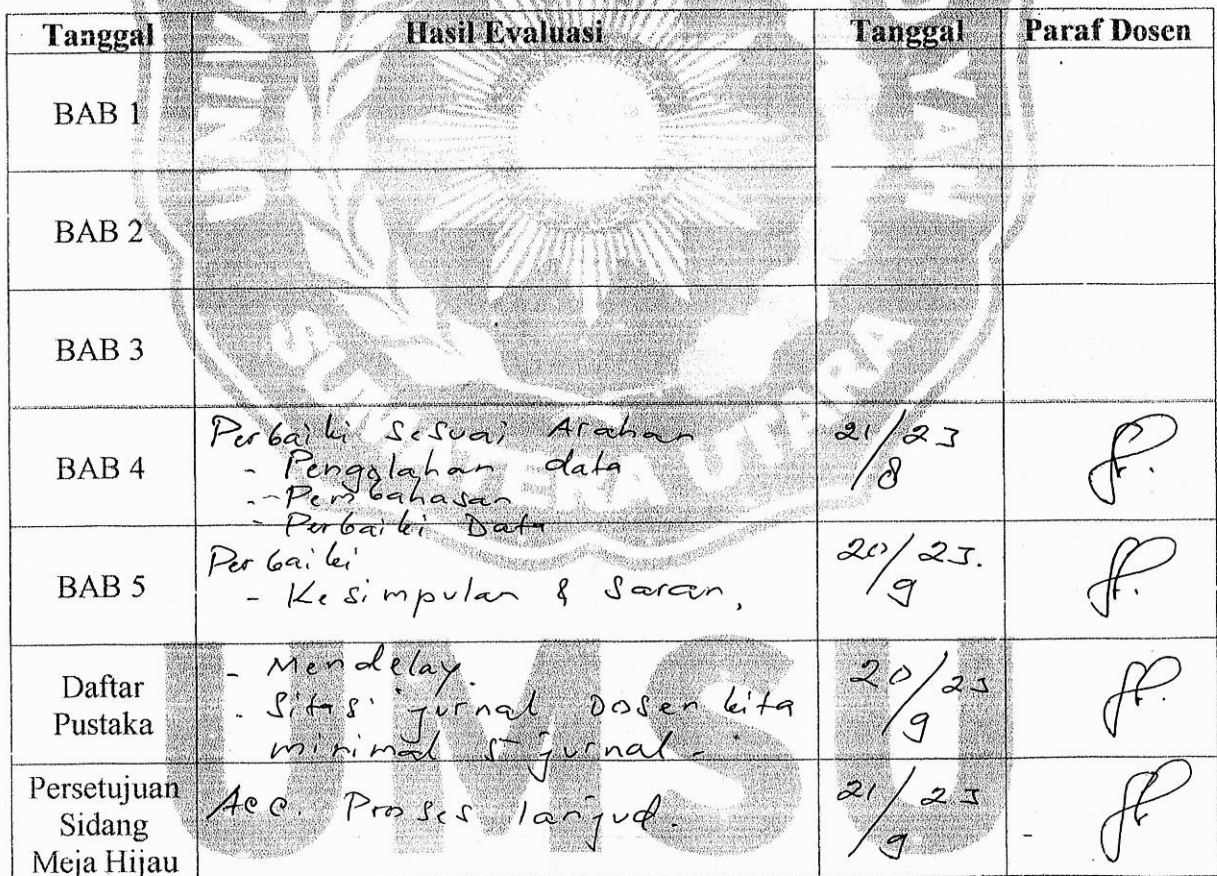 Tanggal Hasil Evaluasi Tanggal Paraf Dosen
BAB 1
BAB 2
BAB 3
BAB 4
Perbaiki Sesuai Arahan
- Pengolahan data
- Pembahasan
- Perbaiki Data
21/8 23
BAB 5
Perbaiki
- Kesimpulan & Saran,
20/9 23.
Daftar
Pustaka
- Mendelay.
- Sitasi jurnal Dosen kita
minimal 5 jurnal -
20/9 23
Persetujuan
Sidang
Meja Hijau
Acc. Proses lanjud.
21/9 23
UNIV
HAYA
SUMATERA UTARA
UMSU